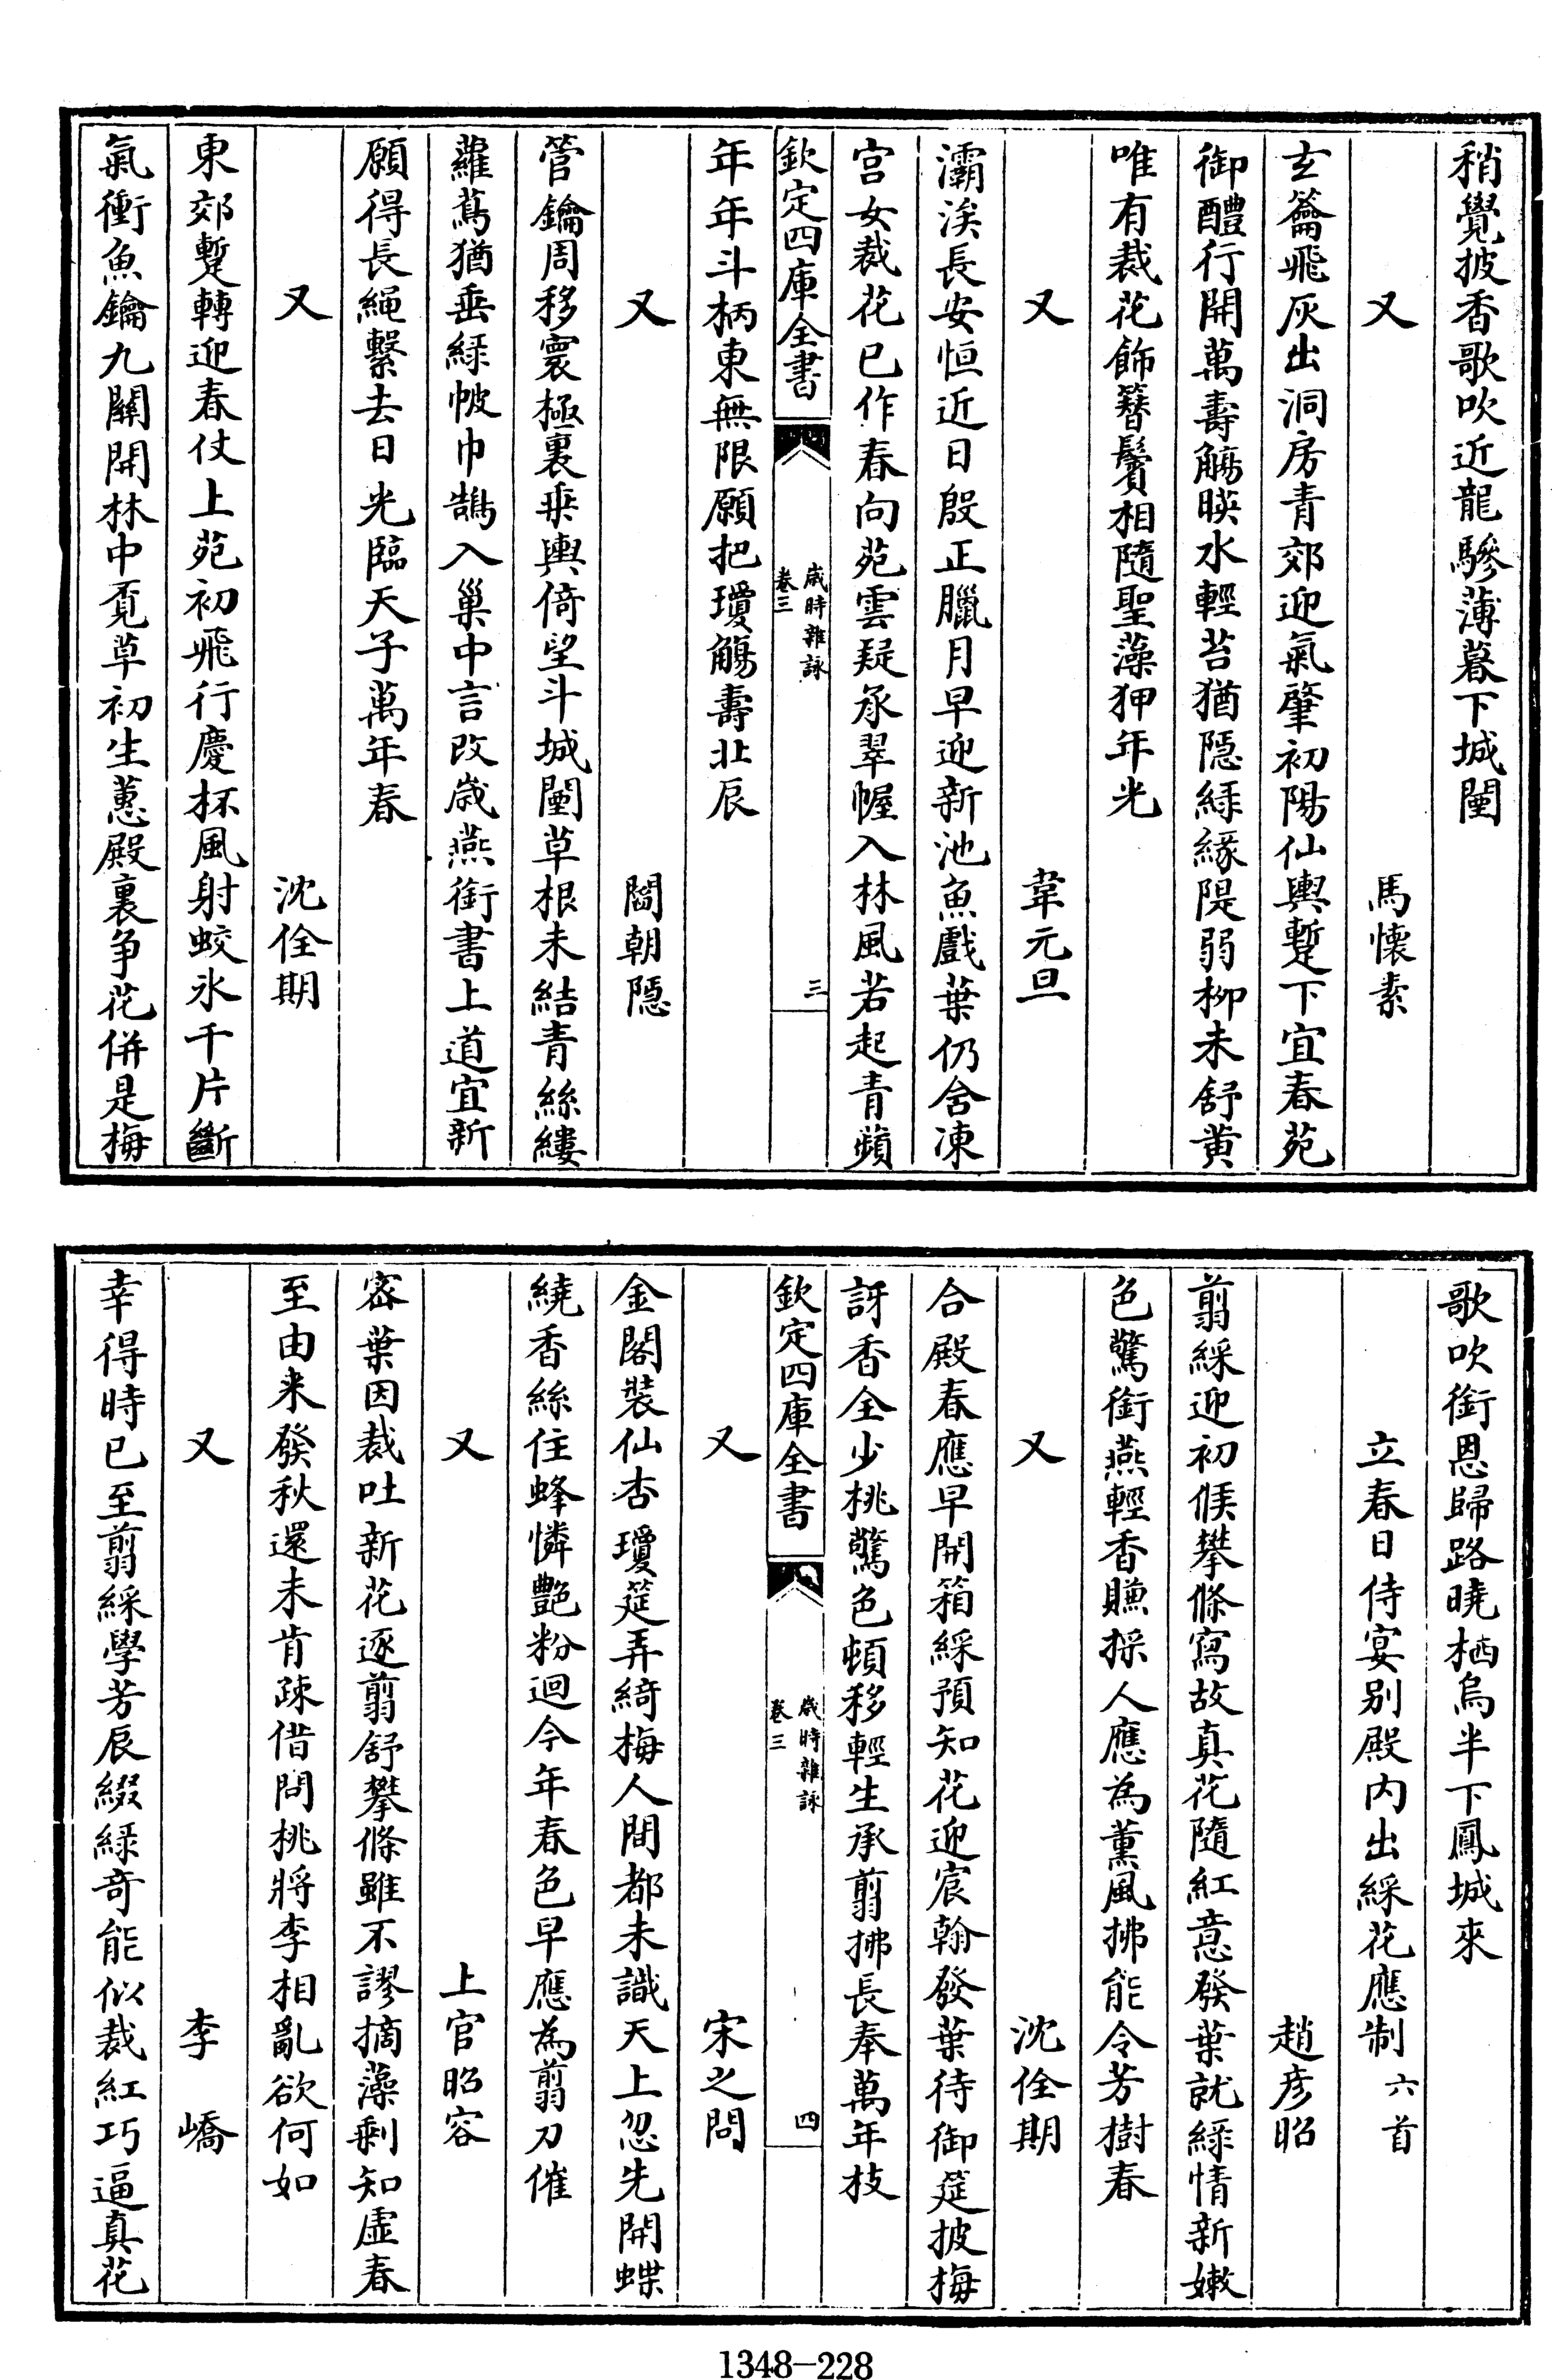 稍覺披香歌吹近龍驂薄暮下城闉
又　馬懷素
玄籥飛灰出洞房青郊迎氣肇初陽仙輿蹔下宜春苑
御醴行開萬壽觴暎水輕苔猶隱緑縁隄弱柳未舒黄
唯有裁花飾簪鬢相隨聖藻狎年光
又　韋元旦
灞涘長安恒近日殷正臘月早迎新池魚戲葉仍含凍
宫女裁花已作春向苑雲疑承翠幄入林風若起青蘋
欽定四庫全書
歲時雜詠
卷三
三
年年斗柄東無限願把瓊觴壽北辰
又　閻朝隱
管鑰周移寰極裏乘輿倚望斗城闉草根未結青絲縷
蘿蔦猶垂緑帔巾鵲入巢中言改歲燕銜書上道宜新
願得長繩繫去日光臨天子萬年春
又　沈佺期
東郊蹔轉迎春仗上苑初飛行慶杯風射蛟氷千片斷
氣衝魚鑰九關開林中覓草初生蕙殿裏爭花併是梅
歌吹銜恩歸路曉栖烏半下鳳城來
立春日侍宴别殿内出綵花應制　六首
趙彦昭
翦綵迎初候攀條寫故真花隨紅意發葉就緑情新嫩
色驚銜燕輕香賺採人應為薰風拂能令芳樹春
又　沈佺期
合殿春應早開箱綵預知花迎宸翰發葉待御筵披梅
訝香全少桃驚色頓移輕生承翦拂長奉萬年枝
欽定四庫全書
歲時雜詠
卷三
四
又　宋之問
金閣裝仙杏瓊筵弄綺梅人間都未識天上忽先開蝶
繞香絲住蜂憐艶粉迴今年春色早應為翦刀催
又　上官昭容
密葉因裁吐新花逐翦舒攀條雖不謬摘藻剩知虚春
至由来發秋還未肯疎借問桃將李相亂欲何如
又　李嶠
幸得時已至翦綵學芳辰綴緑奇能似裁紅巧逼真花
1348—228